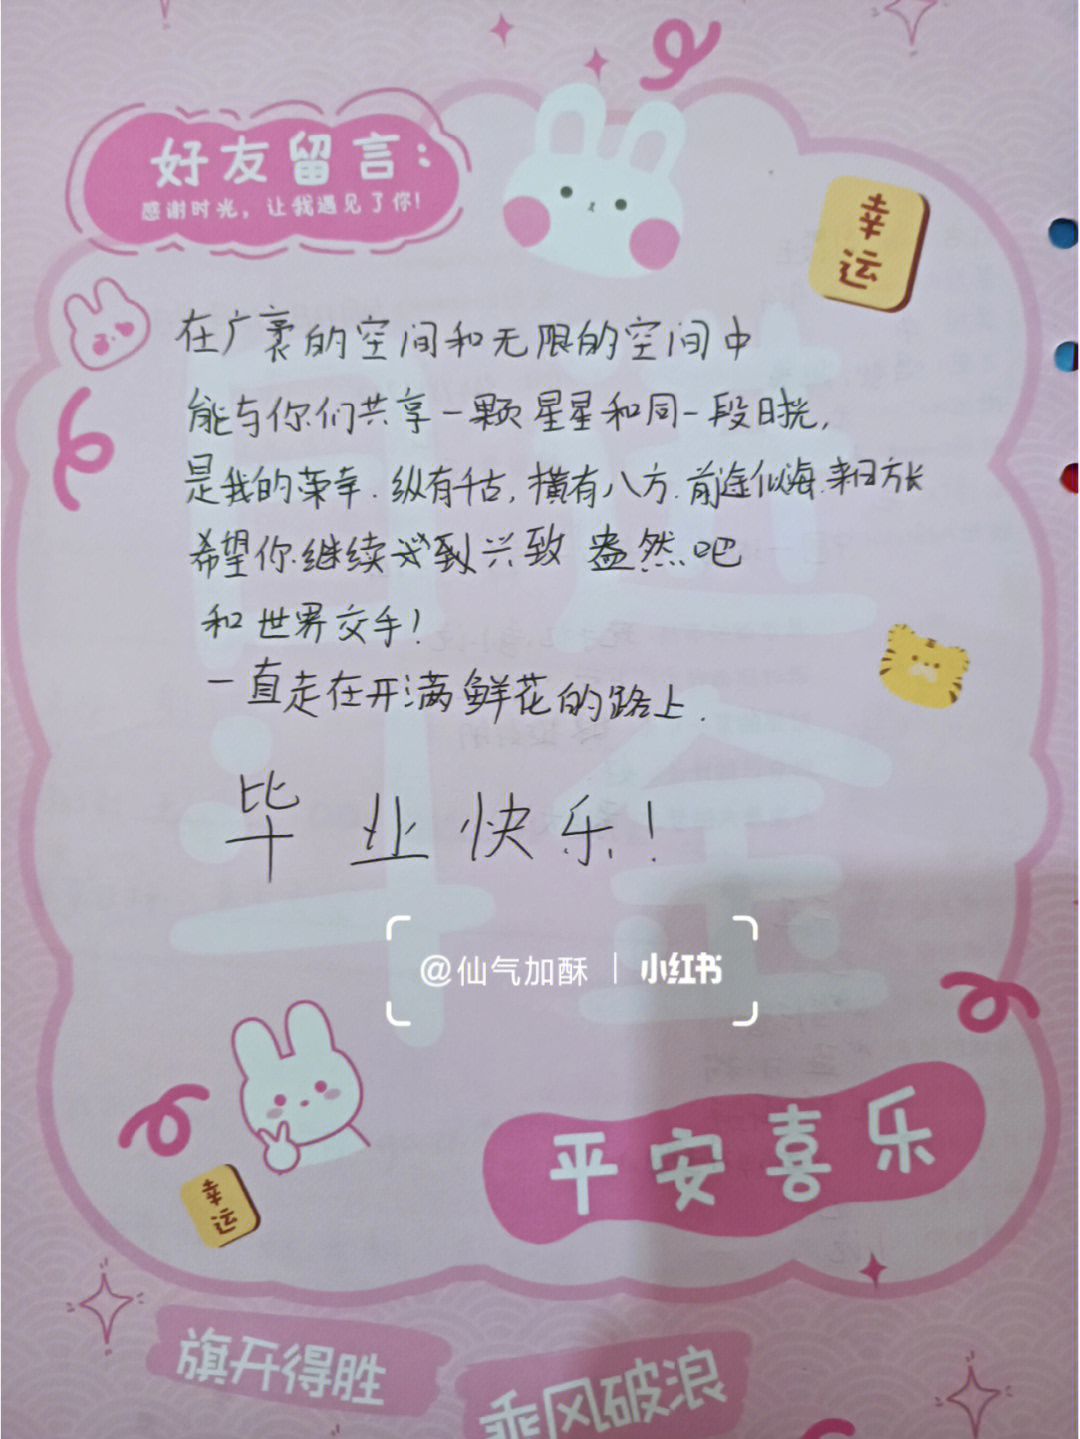 好友留言:
感谢时光，让我遇见了你!
幸运
在广袤的空间和无限的空间中
能与你们共享一颗星星和同一段时光,
是我的荣幸.纵有千古,横有八方.前途似海.来日方长
希望你.继续 到兴致盎然.吧
和世界交手!
一直走在开满鲜花的路上.
毕业快乐!
@仙气加酥 | 小红书
平安喜乐
幸运
旗开得胜
乘风破浪